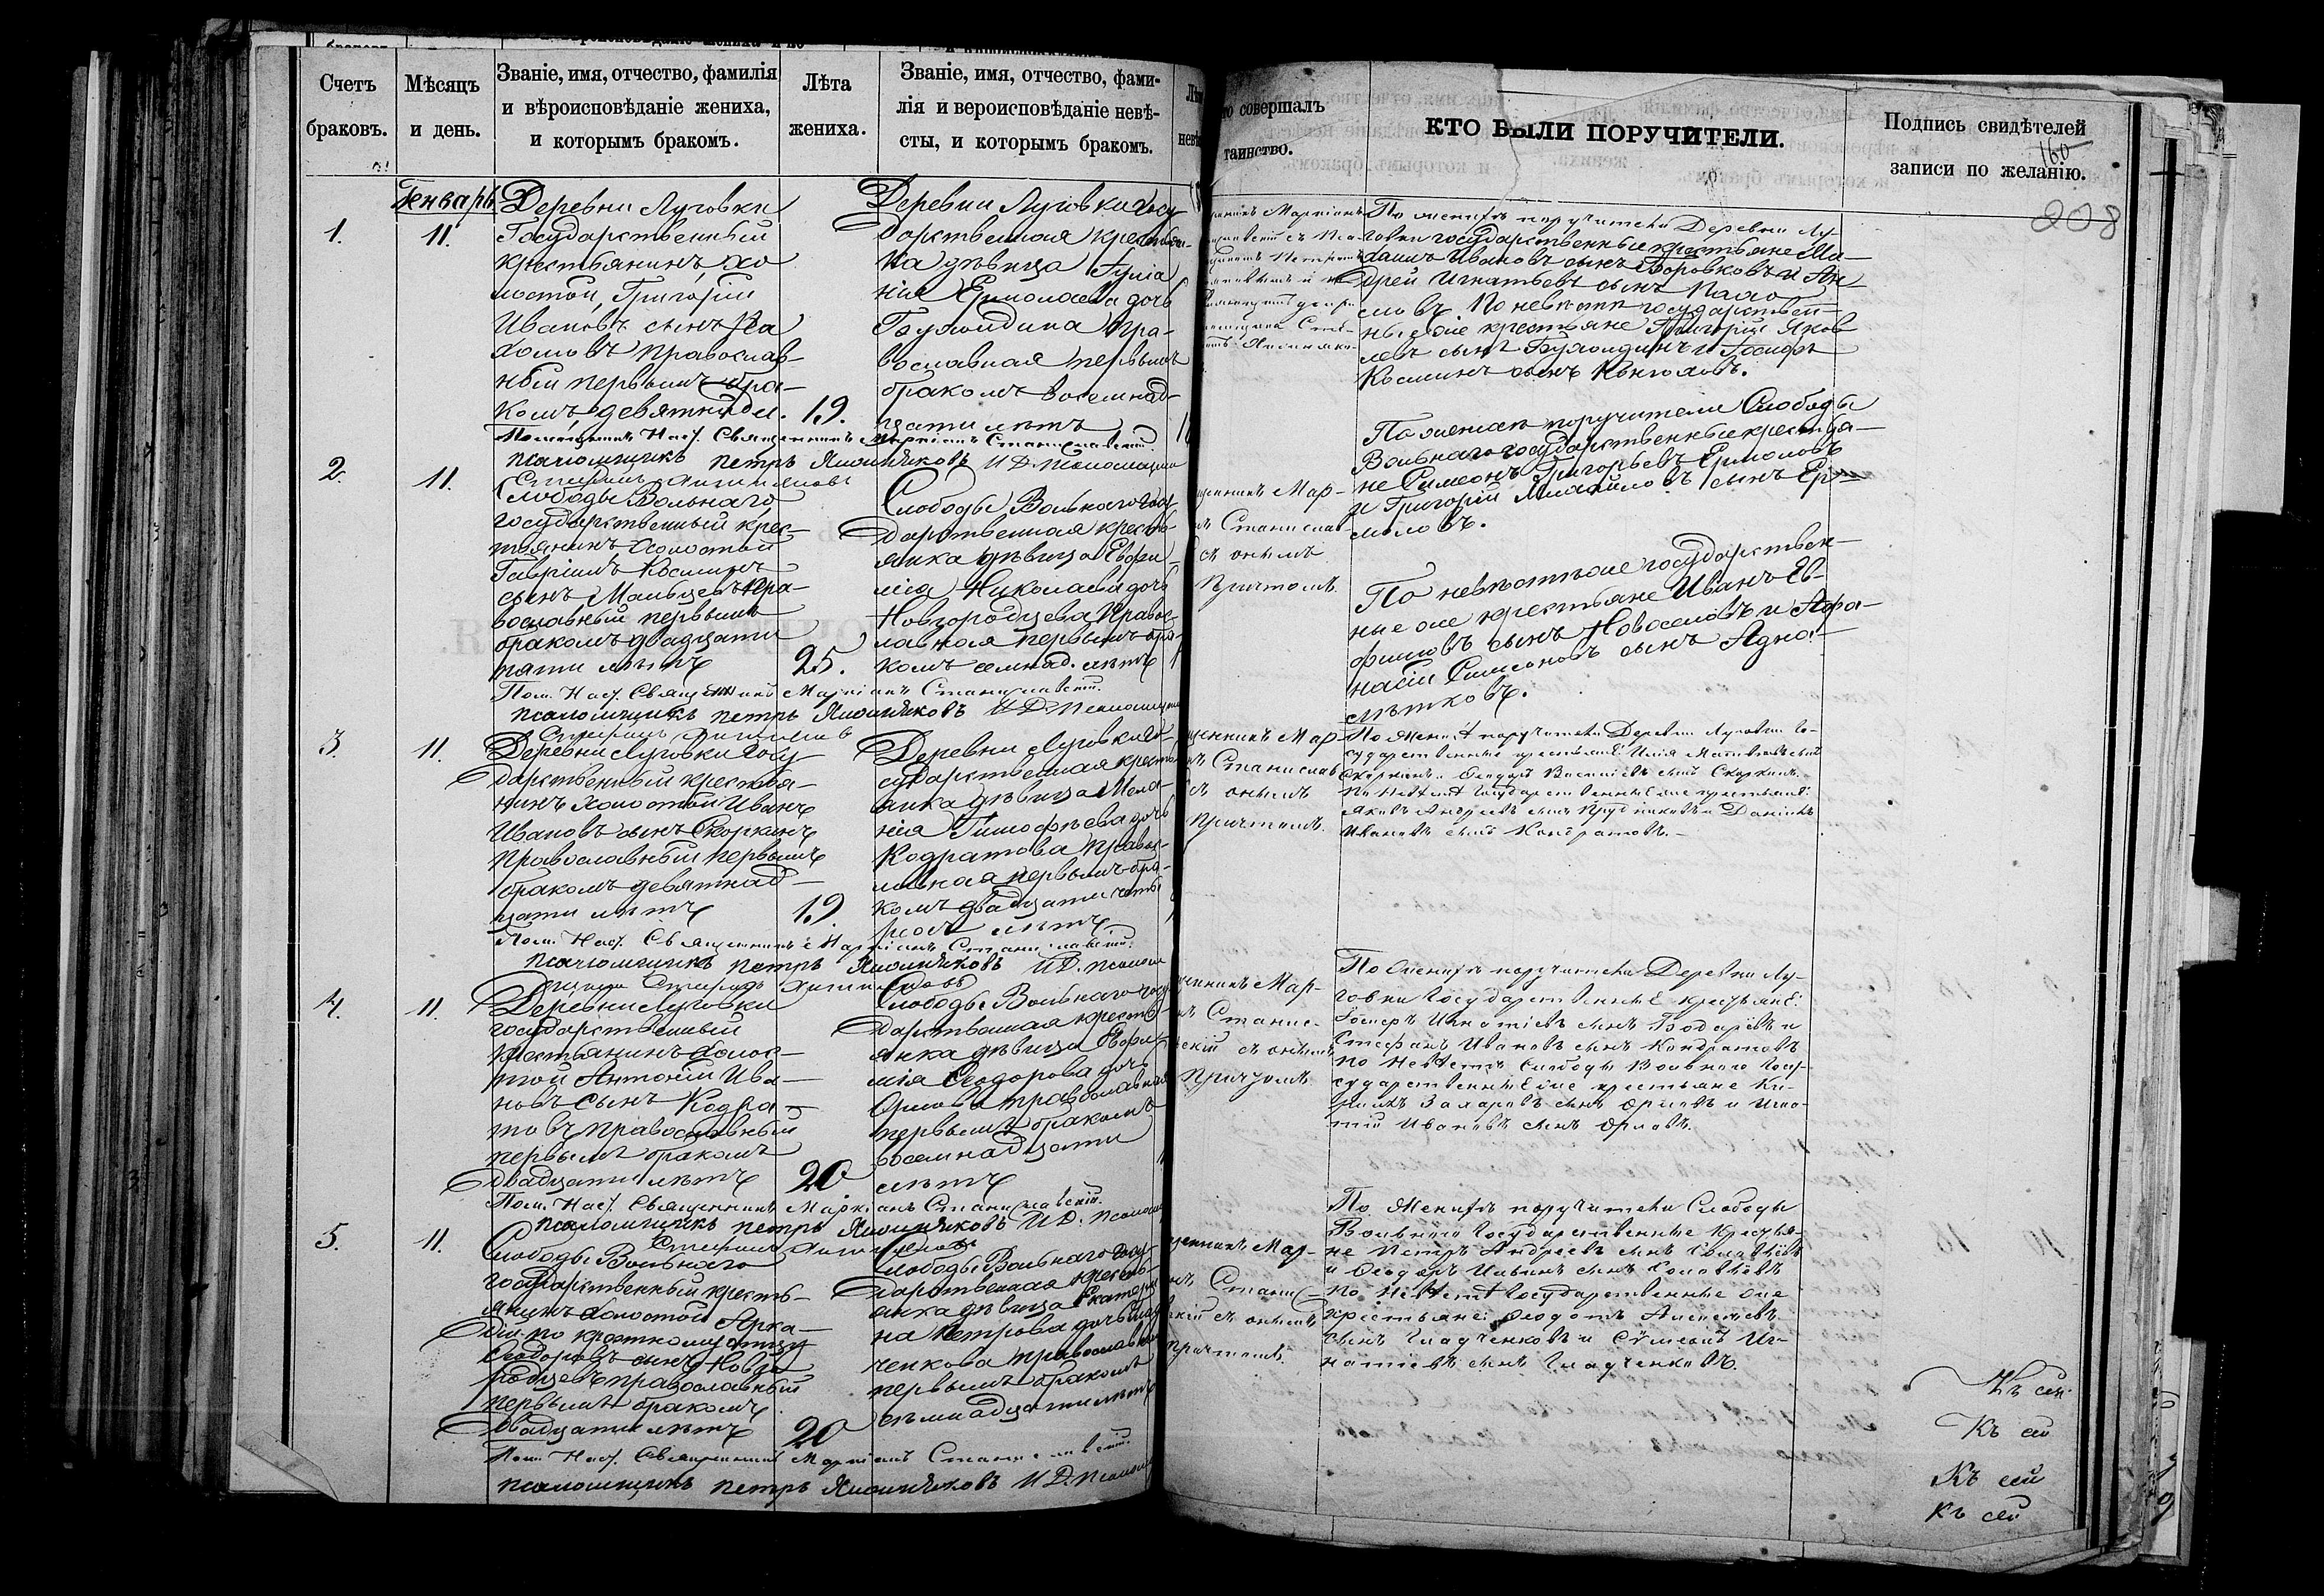 Счетъ браковъ.
Мѣсяцъ и день.
Званіе, имя, отчество, фамилія
и вѣроисповѣданіе жениха,
и которымъ бракомъ.
Лѣта жениха.
Званіе, имя, отчество, фами-
лія и вероисповѣданіе невѣ-
сты, и которымъ бракомъ.
совершалъ
таинство.
КТО БЫЛИ ПОРУЧИТЕЛИ.
Подпись свидѣтелей
записи по желанію.
160
208
Генварь
1.
11.
Деревни Луговки
Государственный
крестьянинъ хо
лостой, Григорій
Ивановъ сынъ
православ-
ный первымъ бра-
комъ, девятнадц.
19.
Деревни Луговки Госу
дарственная крестьян-
ка дѣвица Іулiа
нія Ермолаева дочь
пра-
вославная первымъ
бракомъ восемнад-
цати лѣтъ
По женихѣ поручители Деревни Лу-
говки государственные крестьяне
Ивановъ сынъ Боровковъ и Ан
дрей Игнатьевъ сынъ
По невѣстѣ государствен-
ные же крестьяне Григорій Яков
левъ сынъ
Косминъ сынъ
Священникъ Маркіанъ Станиславскій
псаломщикъ Петръ
И. Д. псаломщика
2.
11.
Слободы Вольнаго
государственный крес-
тьянинъ холостой
Гавріилъ Косминъ
сынъ Мальцевъ пра-
вославный первымъ
бракомъ двадцати
пяти лѣтъ
25.
Слободы Вольнаго госу
дарственная кресть-
янка дѣвица Евфи
мія Николаева дочь
Новгородцева правос-
лавная первымъ бра-
комъ семнад. лѣтъ
Мар-
Станислав
съ онымъ
причтомъ.
По женихѣ поручители Слободы
Вольнаго государственные крестья-
не Симеонъ Григорьевъ Ермоловъ
и Григорій Михайловъ сынъ Ер-
моловъ.
По невѣстѣ же государствен-
ные же крестьяне Иванъ Ев-
фимовъ сынъ Новоселовъ и Афа-
насій Симеоновъ сынъ
Пом. Наст. Священникъ Маркіанъ Станиславскій.
псаломщикъ Петръ
И. Д. псаломщика
3.
11.
Деревни Луговки Госу
дарственный крестья-
нинъ холостой Иванъ
Ивановъ сынъ Скоркинъ
православный первымъ
бракомъ девятнад-
цати лѣтъ
19.
Деревни Луговки Го-
сударственная кресть
янка дѣвица Мела-
нія Тимофѣева дочь
Кодратова правос-
лавная первымъ бра-
комъ двадцати четы
рехъ лѣтъ
Мар
Станислав
съ онымъ
причтомъ.
По женихѣ поручители Деревни Луговки Го-
сударственные крестьяне: Илія Матвѣевъ сынъ
Скоркинъ и Ѳеодоръ Василіевъ сынъ Скоркинъ.
По невѣстѣ Государственные же крестьяне:
Яковъ Андреевъ сынъ Прудниковъ и Даніилъ
Ивановъ сынъ Кондратовъ.
Пом. Наст. Священникъ Маркіанъ Станиславскій.
псаломщикъ Петръ
И. Д. псаломщика
4.
11.
Деревни Луговки
государственный
крестьянинъ холос-
той Антоній Ива-
новъ сынъ Кодра-
товъ православный
первымъ бракомъ
двадцати лѣтъ
20
Слободы Вольнаго госу
дарственная кресть-
янка дѣвица Евфи-
мія Ѳеодорова дочь
Орлова православная
первымъ бракомъ
восемнадцати
лѣтъ
Мар-
Станис-
скій съ онымъ
причтомъ
По женихѣ поручители Деревни Лу-
говки Государственные крестьяне:
Игнатіевъ сынъ и
Стефанъ Ивановъ сынъ Кондратовъ
по невѣстѣ Слободы Вольнаго Госу-
сударственные же крестьяне Ки-
риллъ Захаровъ сынъ Орловъ и Игна-
тій Ивановъ сынъ Орловъ.
Пом. Наст. Священникъ Маркіанъ Станиславскій.
псаломщикъ Петръ
И. Д. псаломщика
5.
11.
Слободы Вольнаго
государственный кресть-
янинъ холостой Арка-
дій по крестному отцу
Ѳеодоровъ сынъ Новго
родцевъ православный
первымъ бракомъ
двадцати лѣтъ
20
Слободы Вольнаго госу-
дарственная кресть-
янка дѣвица Екатери
на Петрова дочь Глад
ченкова православная
первымъ бракомъ
семнадцати лѣтъ
Мар-
Станис-
скій съ онымъ
причтомъ.
По женихѣ поручители Слободы
Вольнаго Государственные крестья-
не Петръ Андреевъ сынъ Соловьевъ
и Ѳеодоръ Ильинъ сынъ Соловьевъ
По невѣстѣ Государственные же
крестьяне: Ѳеодотъ Алексѣевъ
сынъ Гладченковъ и Сѵмеонъ Иг-
натіевъ сынъ Гладченковъ.
Пом. Наст. Священникъ Маркіанъ Станиславскій.
псаломщикъ Петръ
И. Д. псаломщ
Къ сей
Къ сей
Къ сей
Къ сей